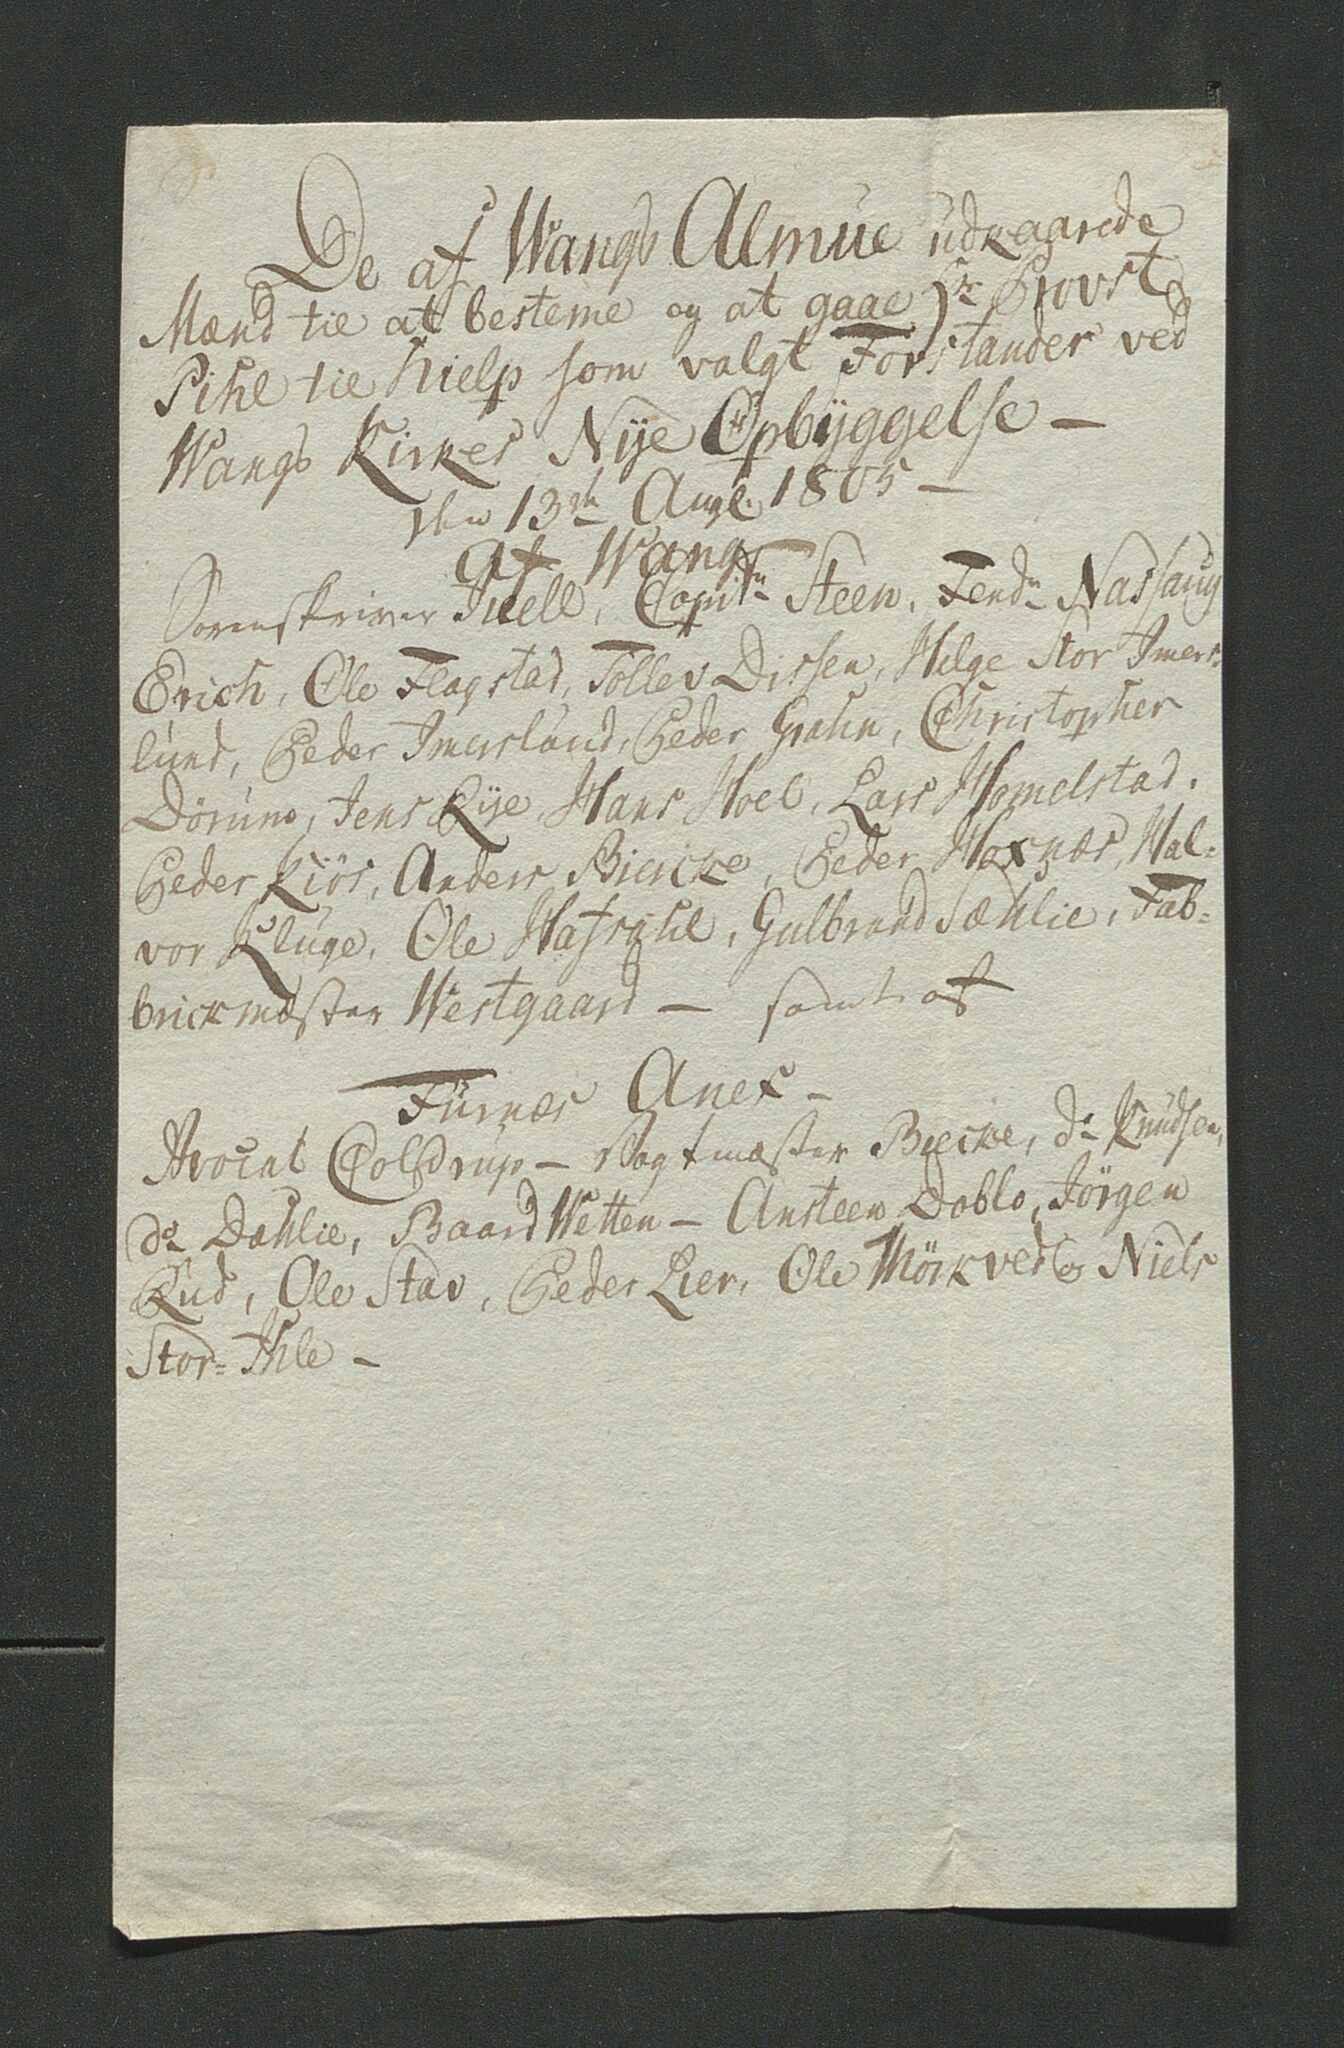 De af Wangs Almue udkaarede
Mænd til at besteme og at gaae Hr Provst
Pihl til hielp som valgt Forstander ved
Wangs Kirkes Nye Opbyggelse —
den 13de Augl. 1805 —
af Wang
Sorenskriver Juell, Capitn Steen, Fendr Nassaug
Erich, Ole Flagstad, Tollev Dissen, Helge Stor Imers-
lund, Peder Imerslund, Peder Grahn, Christopher
Dörum, Jens Rye, Hans Hoel, Lars Homelstad,
Peder Kiös, Anders Biercke, Peder Hoxnæs, Hal=
vor Kluge, Ole Hafrahl, Gulbrand Sæhlie, Fab=
brickmæster Westgaard — samt af
Furnæs Anex —
Avocat Coldrup — Vagtmæster Biercke, do Knudsen,
do Dæhlie, Baard Wetten — Ansteen Doblo, Jörgen
Rud, Ole Stav, Peder Lier, Ole Mörkved og Niels
Stor=Ihle —